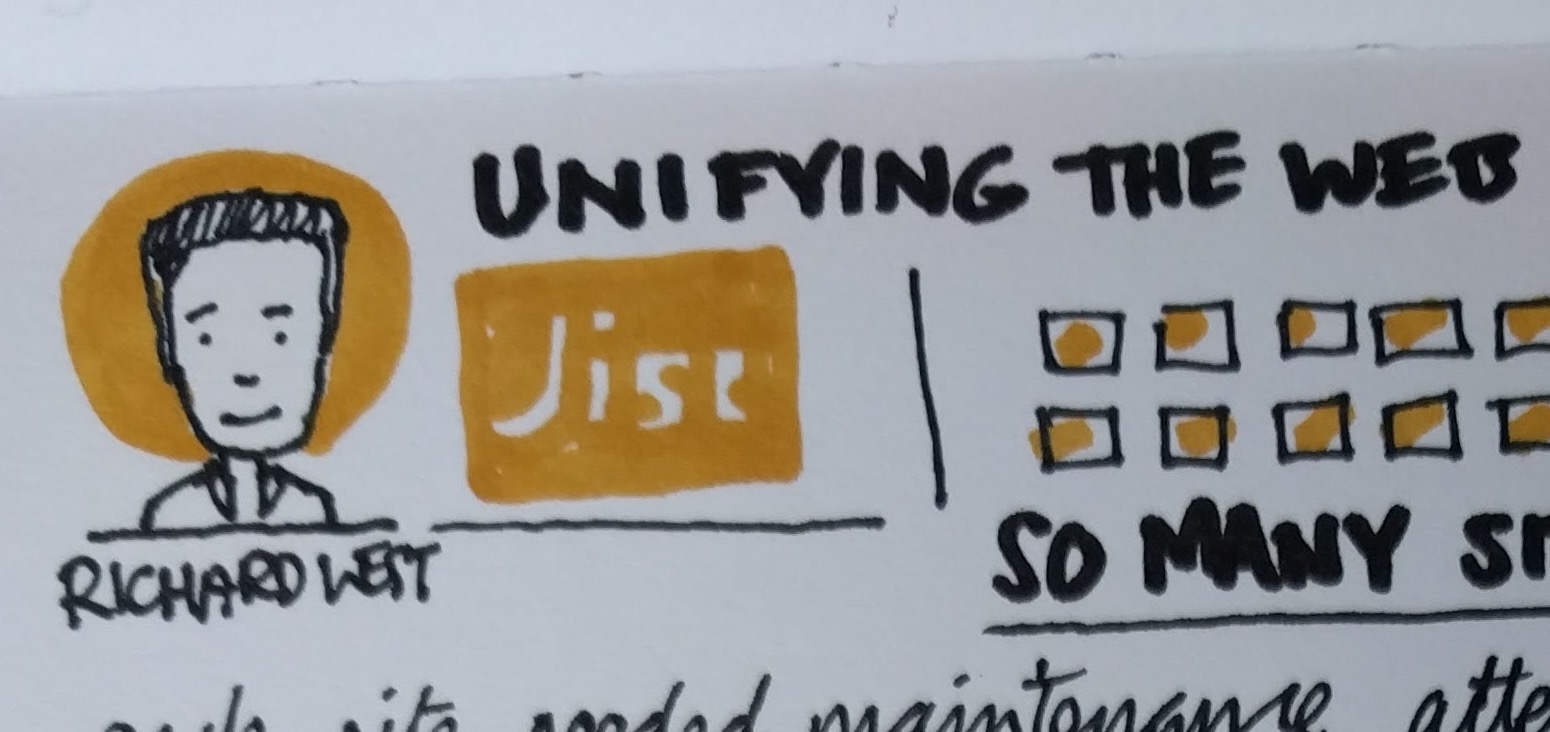 UNIFYING THE WEB
Jisc
RICHARD WEST
SO MANY
each site needed maintenance